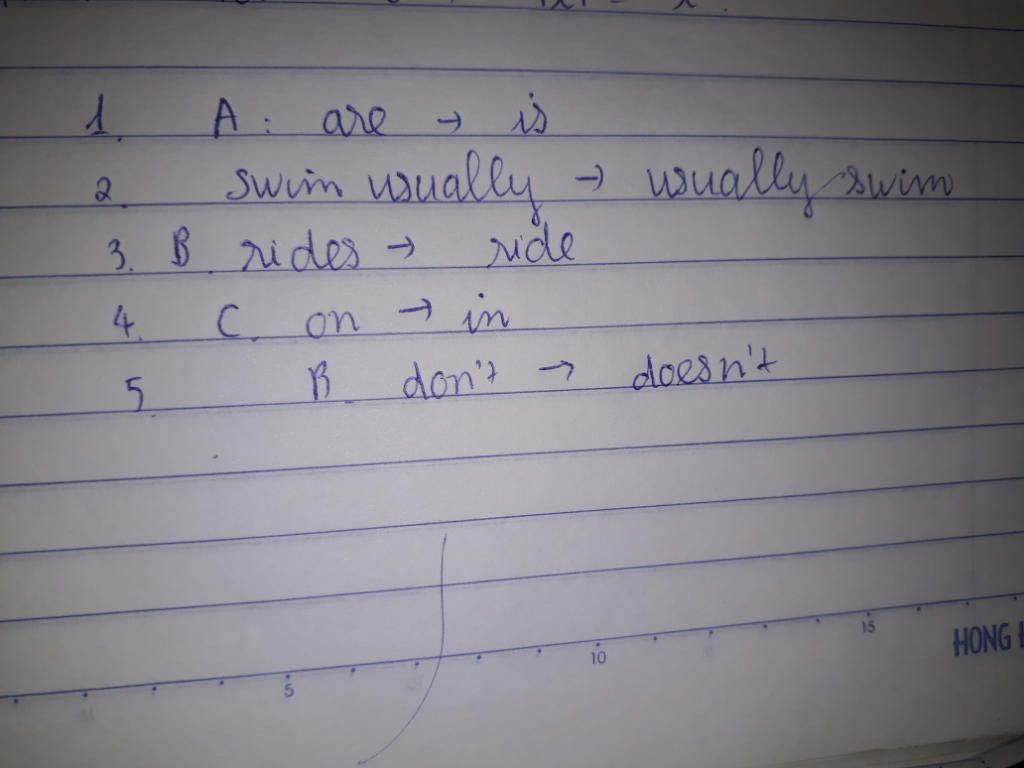 1. A: are → is
2. swim usually → usually swim
3. B. rides → ride
4. C. on → in
5. B. don't → doesn't
5 10 15
HONG